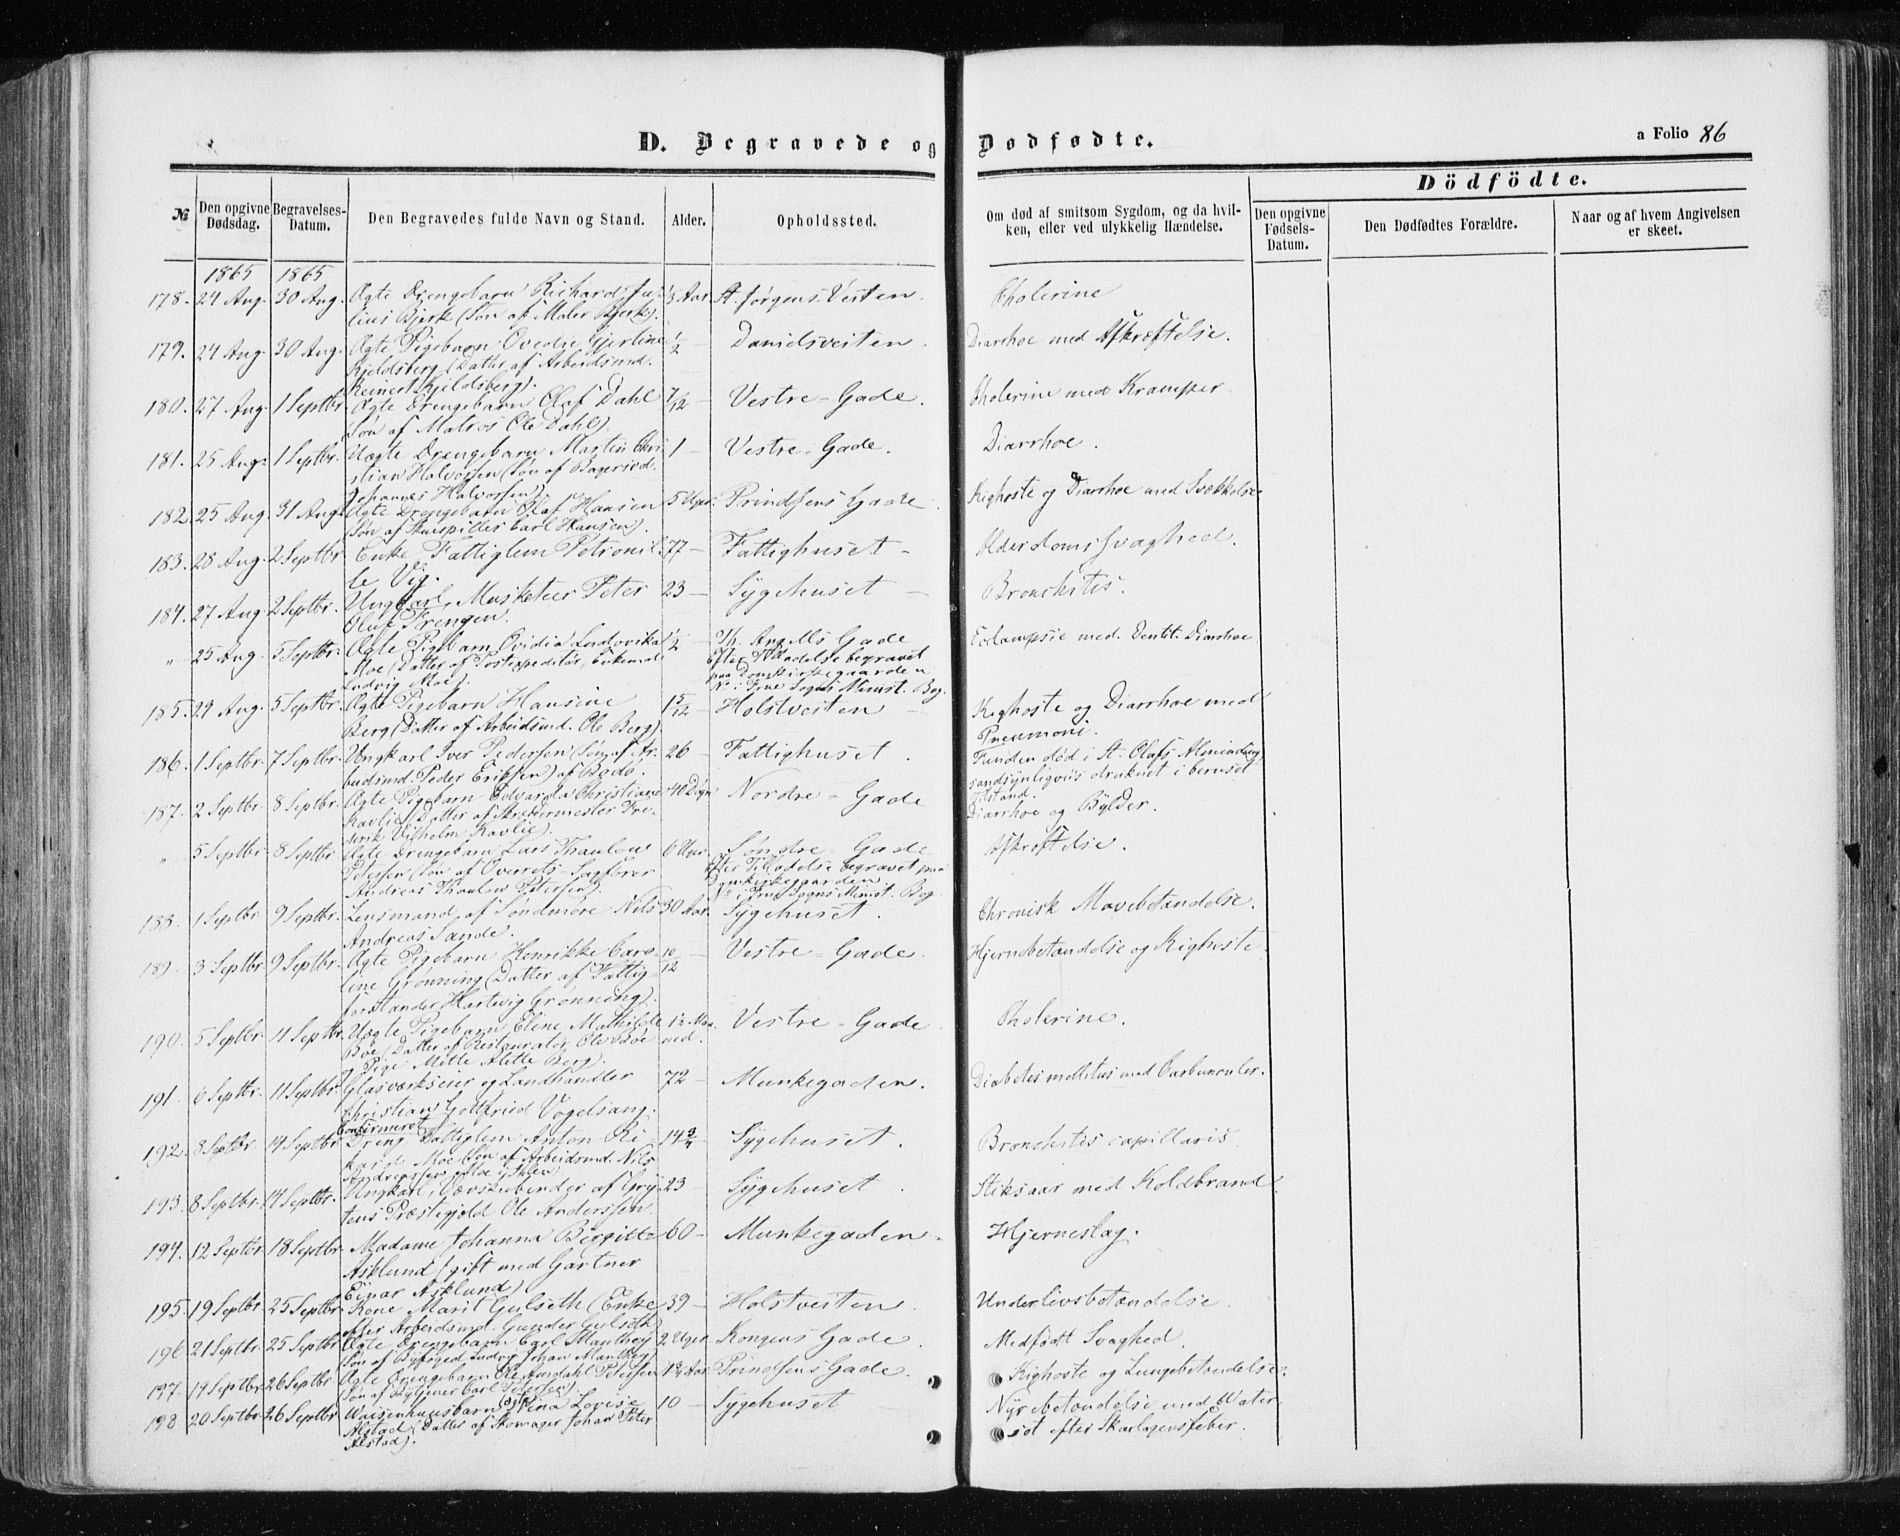 D. Begravede og Dødfødte.
a Folio 86
Dödfödte.
№
Den opgivne Dødsdag.
Begravelses-Datum.
Den Begravedes fulde Navn og Stand.
Alder.
Opholdssted.
Om død af smitsom Sygdom, og da hvil-
ken, eller ved ulykkelig Hændelse.
Den opgivne Fødsels-Datum.
Den Dødfødtes Forældre.
Naar og af hvem Angivelsen er skeet.
1865 1865
178. 24 Aug. 30 Aug. Ægte Drengebarn Richard Ju- Aar. St. Jørgens Veiten. Cholerine
lius Bjerk (Søn af Maler Bjerk).
179. 24 Aug. 30 Aug. Ægte Pigebarn Ovedie Gjertine ½ — Danielsveiten. Diarrhoe med Afkræftelse.
Kjeldsberg (Datter af Arbeidsmd.
Reinert Kjeldsberg).
180. 27 Aug. 1 Septbr. Ægte Drengebarn Olaf Dahl 7/12 — Vestre-Gade. Cholerine med Kramper.
(Søn af Matros Ole Dahl).
181. 25 Aug. 1 Septbr. Uægte Drengebarn Martin Chri- 1 — Vestre-Gade. Diarrhoe.
stian Halvorsen (Søn af Bagersvd.
Johannes Halvorsen).
182. 25 Aug. 31 Aug. Ægte Drengebarn Olaf Hansen 5 Uger. Prindsens Gade. Kighoste og Diarrhoe med Svækkelse
(Søn af Skuespiller Carl Hansen).
183. 28 Aug. 2 Septbr. Enke Fattiglem Petronil- 77 — Fattighuset — Alderdomssvaghed.
le Vig.
184. 27 Aug. 2 Septbr. Ungkarl, Musketeer Peter 23 — Sygehuset — Bronchitis.
Oluf Trengen.
„ 25 Aug. 5 Septbr. Ægte Pigebarn Ovidia Ludovika ½ — Th. Angells Gade Eclampsie med Dentit. Diarrhoe
Moe (Datter af Postexpeditør, Enkemd. Efter Tilladelse begravet
Ludvig Moe). paa Domkirkegaarden
N° i Frue Sogns Minist. Bog.
185. 29 Aug. 5 Septbr. Ægte Pigebarn Hansine 1 5/12 Holstveiten — Kighoste og Diarrhoe med
Berg (Datter af Arbeidsmd. Ole Berg). Pneumoni.
186. 1 Septbr. 7 Septbr. Ungkarl Iver Pedersen (Søn af Ar- 26 — Fattighuset. Funden død i St. Olafs Alminding
beidsmd. Peder Eriksen) af Bodø. sandsynligviis druknet i beruset
Tilstand.
187. 2 Septbr. 8 Septbr. Ægte Pigebarn Edvarda Christiane 40 Døgn Nordre-Gade Diarrhoe og Bylder.
Kavlie (Datter af Skræddermester Fre-
derik Vilhelm Kavlie).
„ 5 Septbr. 8 Septbr. Ægte Drengebarn Lars Thaulow 6 Uger Søndre-Gade Afkræftelse.
Petersen (Søn af Overrets-Sagfører Efter Tilladelse begravet paa
Andreas Thaulow Petersen). Domkirkegaarden.
N° i Frue Sogns Minist. Bog.
188. 1 Septbr. 9 Septbr. Lensmand af Søndmøre Nils 30 Aar. Sygehuset. Chronisk Mavebetændelse.
Andreas Sande.
189. 3 Septbr. 9 Septbr. Ægte Pigebarn Henrikke Caro- 10/12 — Vestre-Gade. Hjernebetændelse og Kighoste
line Grønning (Datter af Fattig-
forstander Hartvig Grønning).
190. 5 Septbr. 11 Septbr. Uægte Pigebarn Eline Mathilde 1½ Maa- Vestre-Gade Cholerine.
Boe (Datter af Restauratør Ole Boe ned.
Pige Mette Mette Berg).
191. 6 Septbr. 11 Septbr. Glasværkseier og Landhandler 72 — Munkegaden. Diabetes mellitus med Carbunculer.
Christian Gottfried Vogelsang.
Confirmeret
192. 8 Septbr. 14 Septbr. Dreng Fattiglem Anton Ri- 14 ¾ Sygehuset. Bronchites capillaris
kard Moe (Søn af Arbeidsmd. Nils
Andreassen Moe i Ihlen).
193. 8 Septbr. 14 Septbr. Ungkarl, Vævskebinder af Gry- 23 — Sygehuset. Stiksaar med Koldbrand
tens Præstegjeld Ole Anderssen
194. 12 Septbr. 18 Septbr. Madame Johanna Birgitte 60 — Munkegaden. Hjerneslag.
Asklund (gift med Gartner
Einar Asklund)
195. 19 Septbr. 25 Septbr. Kone Marit Gulseth (Enke 39 — Holstveiten Underlivsbetændelse.
efter Arbeidsmd. Gunder Gulseth)
196. 21 Septbr. 25 Septbr. Ægte Drengebarn Carl Manthey 2 Uger. Kongens Gade. Medfødt Svaghed.
(Søn af Byfoged Ludvig Johan Manthey)
197. 19 Septbr. 26 Septbr. Ægte Drengebarn Ole Aurdahl Petersen 1¼ Aar. Prindsens Gade. Kighoste og Lungebetændelse.
(Søn af Carl Petersen).
198 20 Septbr. 26 Septbr. Waisenhuusbarn (ægte) Nina Lovise 10 — Sygehuset Nyrebetændelse med Vater
Alstad (Datter af Skomager Johan Peter sot efter Skarlagensfeber.
Alstad).